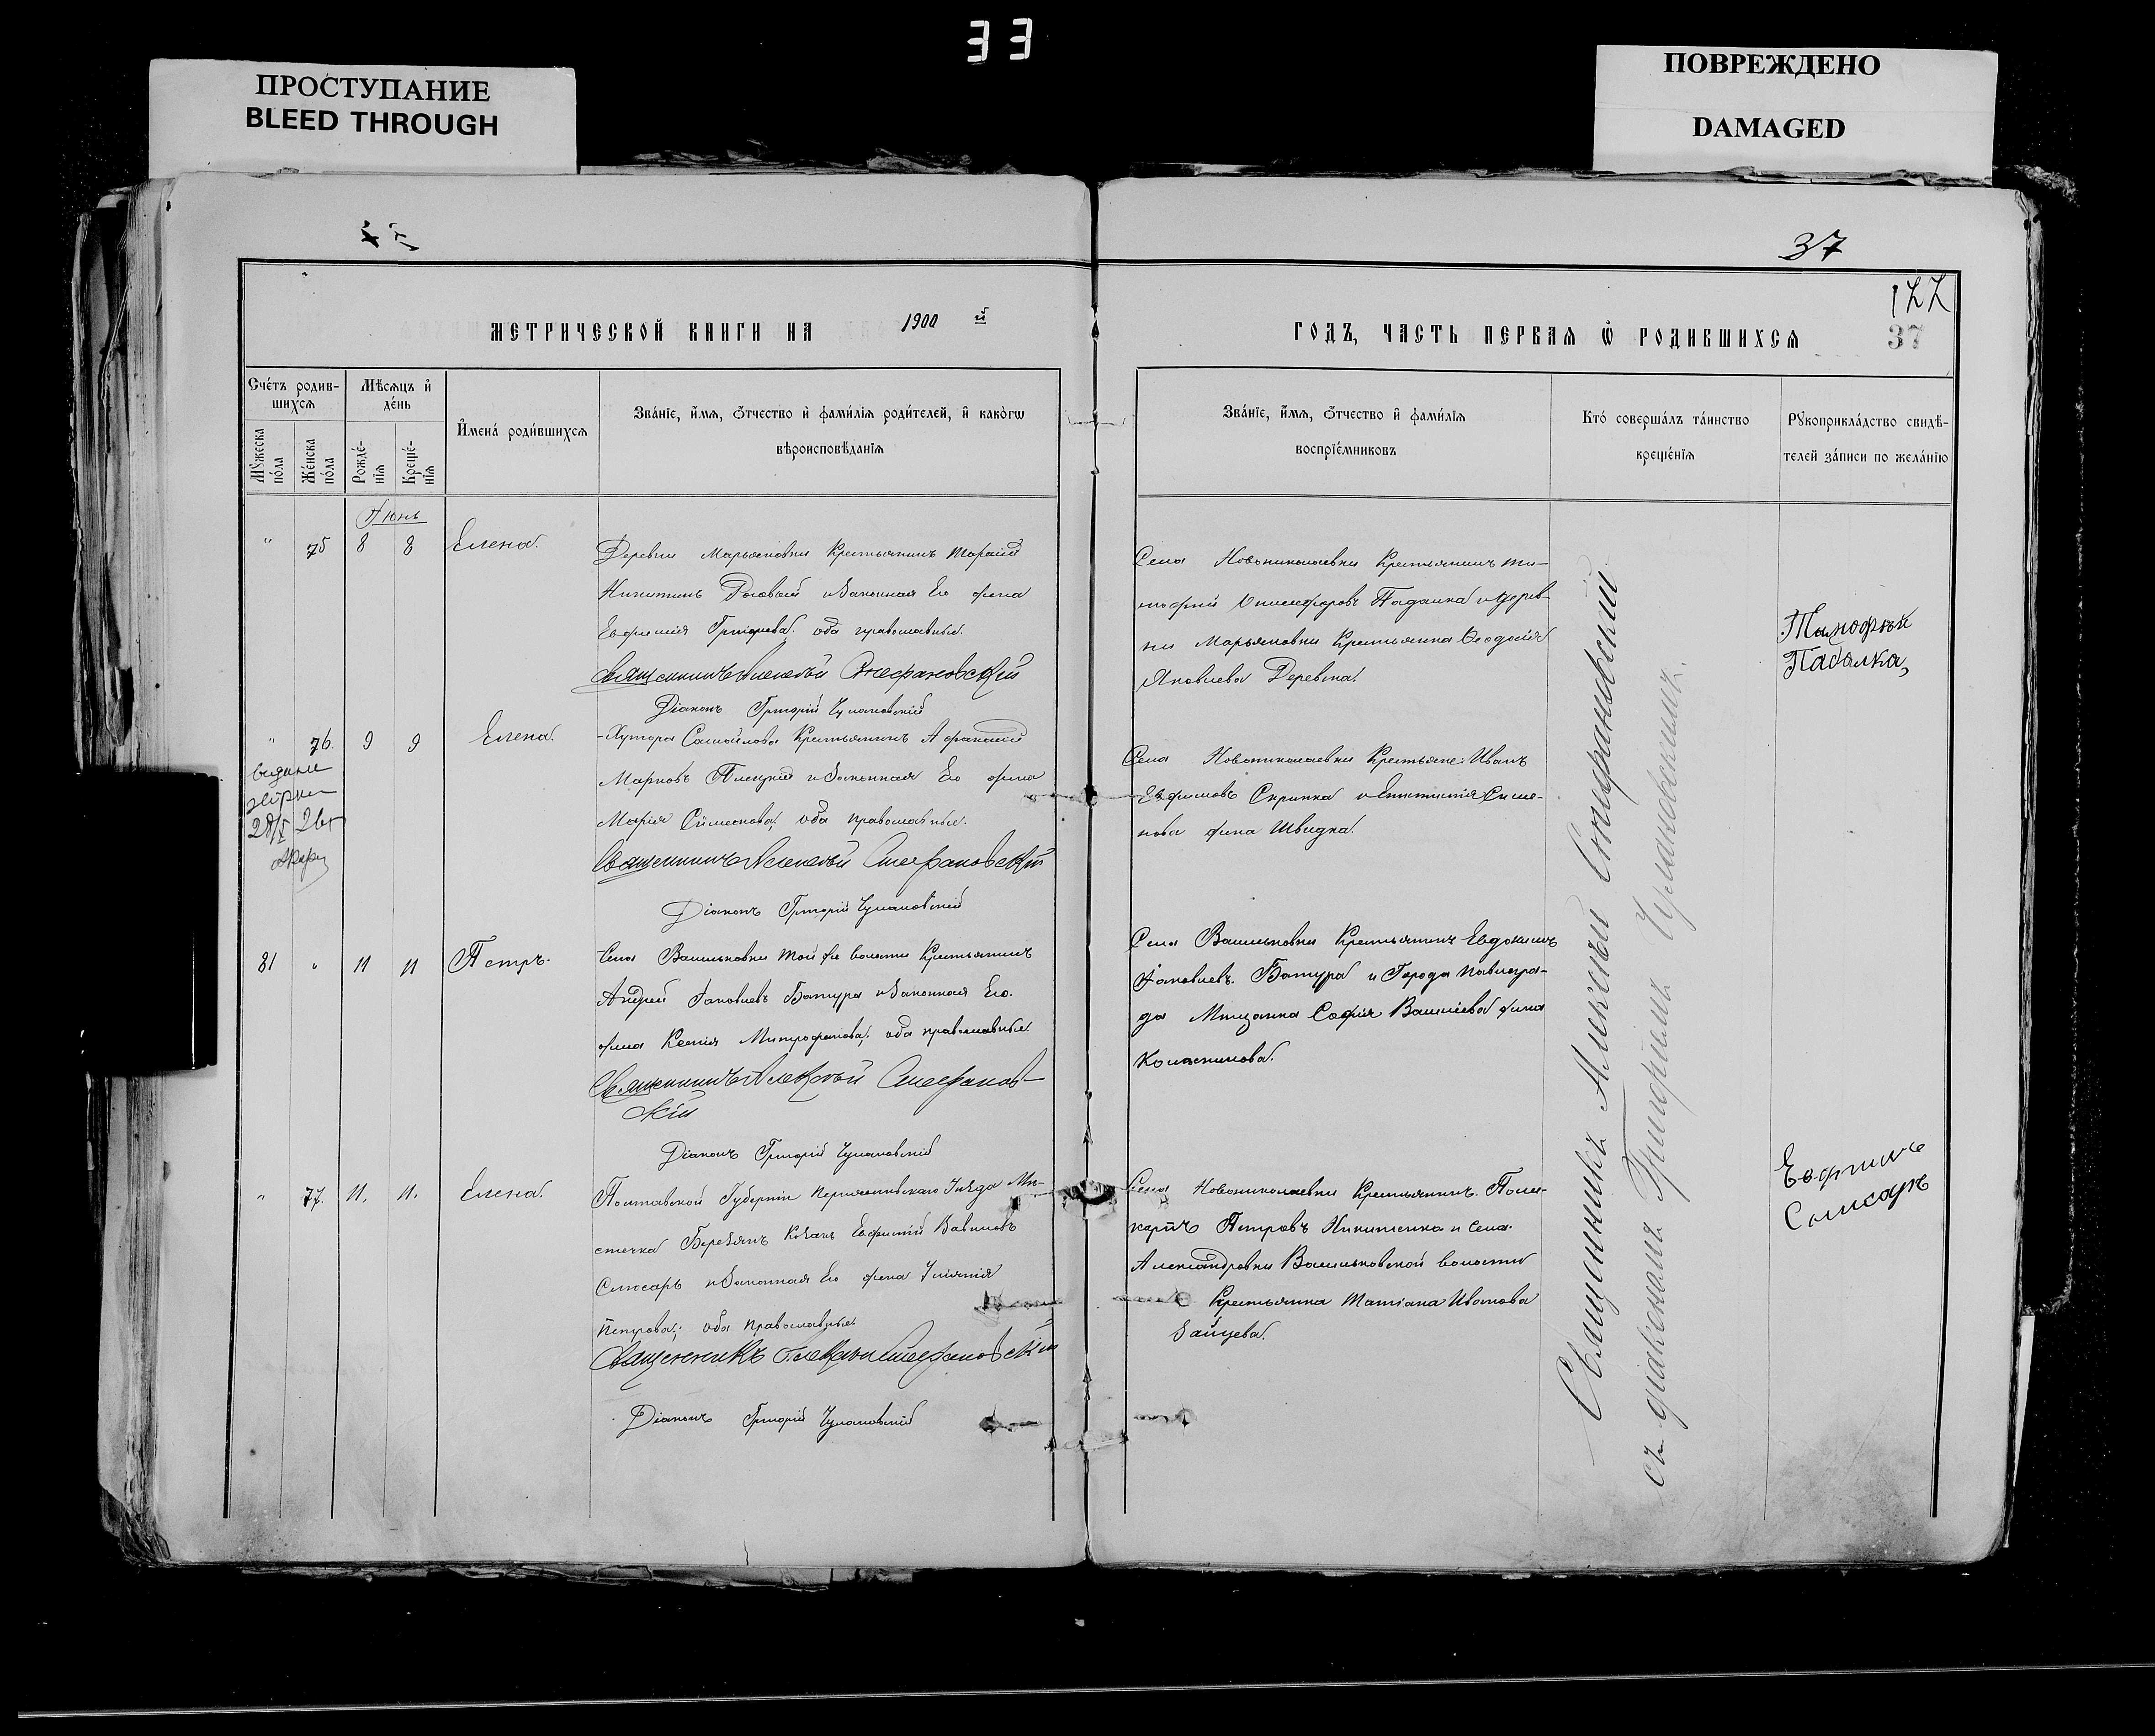 33
ПРОСТУПАНИЕ
BLEED THROUGH
ПОВРЕЖДЕНО
DAMAGED
37
122
37
МЕТРИЧЕСКОЙ КНИГИ НА 1900 й
ГОДЪ, ЧАСТЬ ПЕРВАЯ Ѡ РОДИВШИХСЯ
Счéтъ родив-
шихся
Мѣсяцъ и
дéнь
Мужеска
пóла
Жéнска
пóла
Рождé-
нія
Крещé-
нія
Именá роди́вшихся
Звáніе, и́мя, óтчество и фами́лія роди́телей, и какóгѡ
вѣроисповѣданія
Звáніе, и́мя, óтчество и фами́лія
воспріéмниковъ
Ктó совершáлъ тáинство
крещéнія
Рукоприклáдство свидѣ-
телей зáписи по желáнію
Іюнь
" 75 8 8 Елена.
Деревни Марьяновки Крестьянинъ Тарасій
Никитинъ Роговый и Законная Его жена
Евфимія Григорьева. оба православные.
Священникъ Алексѣй Стефановскій
Діаконъ Григорій Чулановскій
Села Новониколаевки Крестьянинъ Ти-
мофей Онисифоровъ Падалка и дерев-
ни Марьяновки Крестьянка Ѳеодосія
Яковлева Деревска.
Тимофѣй
Падалка
" 76. 9 9 Елена.
28/X 26 г
Хутора Самойлова Крестьянинъ Афанасій
Марковъ Плецкій и Законная Его жена
Марія Симеонова, оба православные.
Священникъ Алексѣй Стефановскій
Діаконъ Григорій Чулановскій
Села Новониколаевки Крестьяне: Иванъ
Евфимовъ Скрипка и Епистимія Симе-
нова жена Швидка.
81 " 11 11 Петръ.
Села Васильковки той же волости Крестьянинъ
Андрей Іаковлевъ Батура и Законная Его
жена Ксенія Митрофанова, оба православные
Священникъ Алексѣй Стефанов-
скій
Діаконъ Григорій Чулановскій
Села Васильковки Крестьянинъ Евдокимъ
Іаковлевъ. Батура и Города Павлогра-
да Мѣщанка Софія Васильева жена
Колесникова.
" 77. 11. 11. Елена.
Полтавской Губерніи Переяславскаго Уѣзда Мѣ-
стечка Березянъ Козакъ Евфимій Вавиловъ
Слюсарь и Законная Его жена Іуліанія
Петрова; оба православные
Священникъ Алексѣй Стефановскій
Діаконъ Григорій Чулановскій
Села Новониколаевки Крестьянинъ. Поли-
карпъ Петровъ Никитенко и села
Александровки Васильковской волости
Крестьянка Татіана Иванова
Зайцева.
Евфимъ
Слюсарь
Священникъ Алексѣй Стефановскій
съ діакономъ Григоріемъ Чулановскимъ.